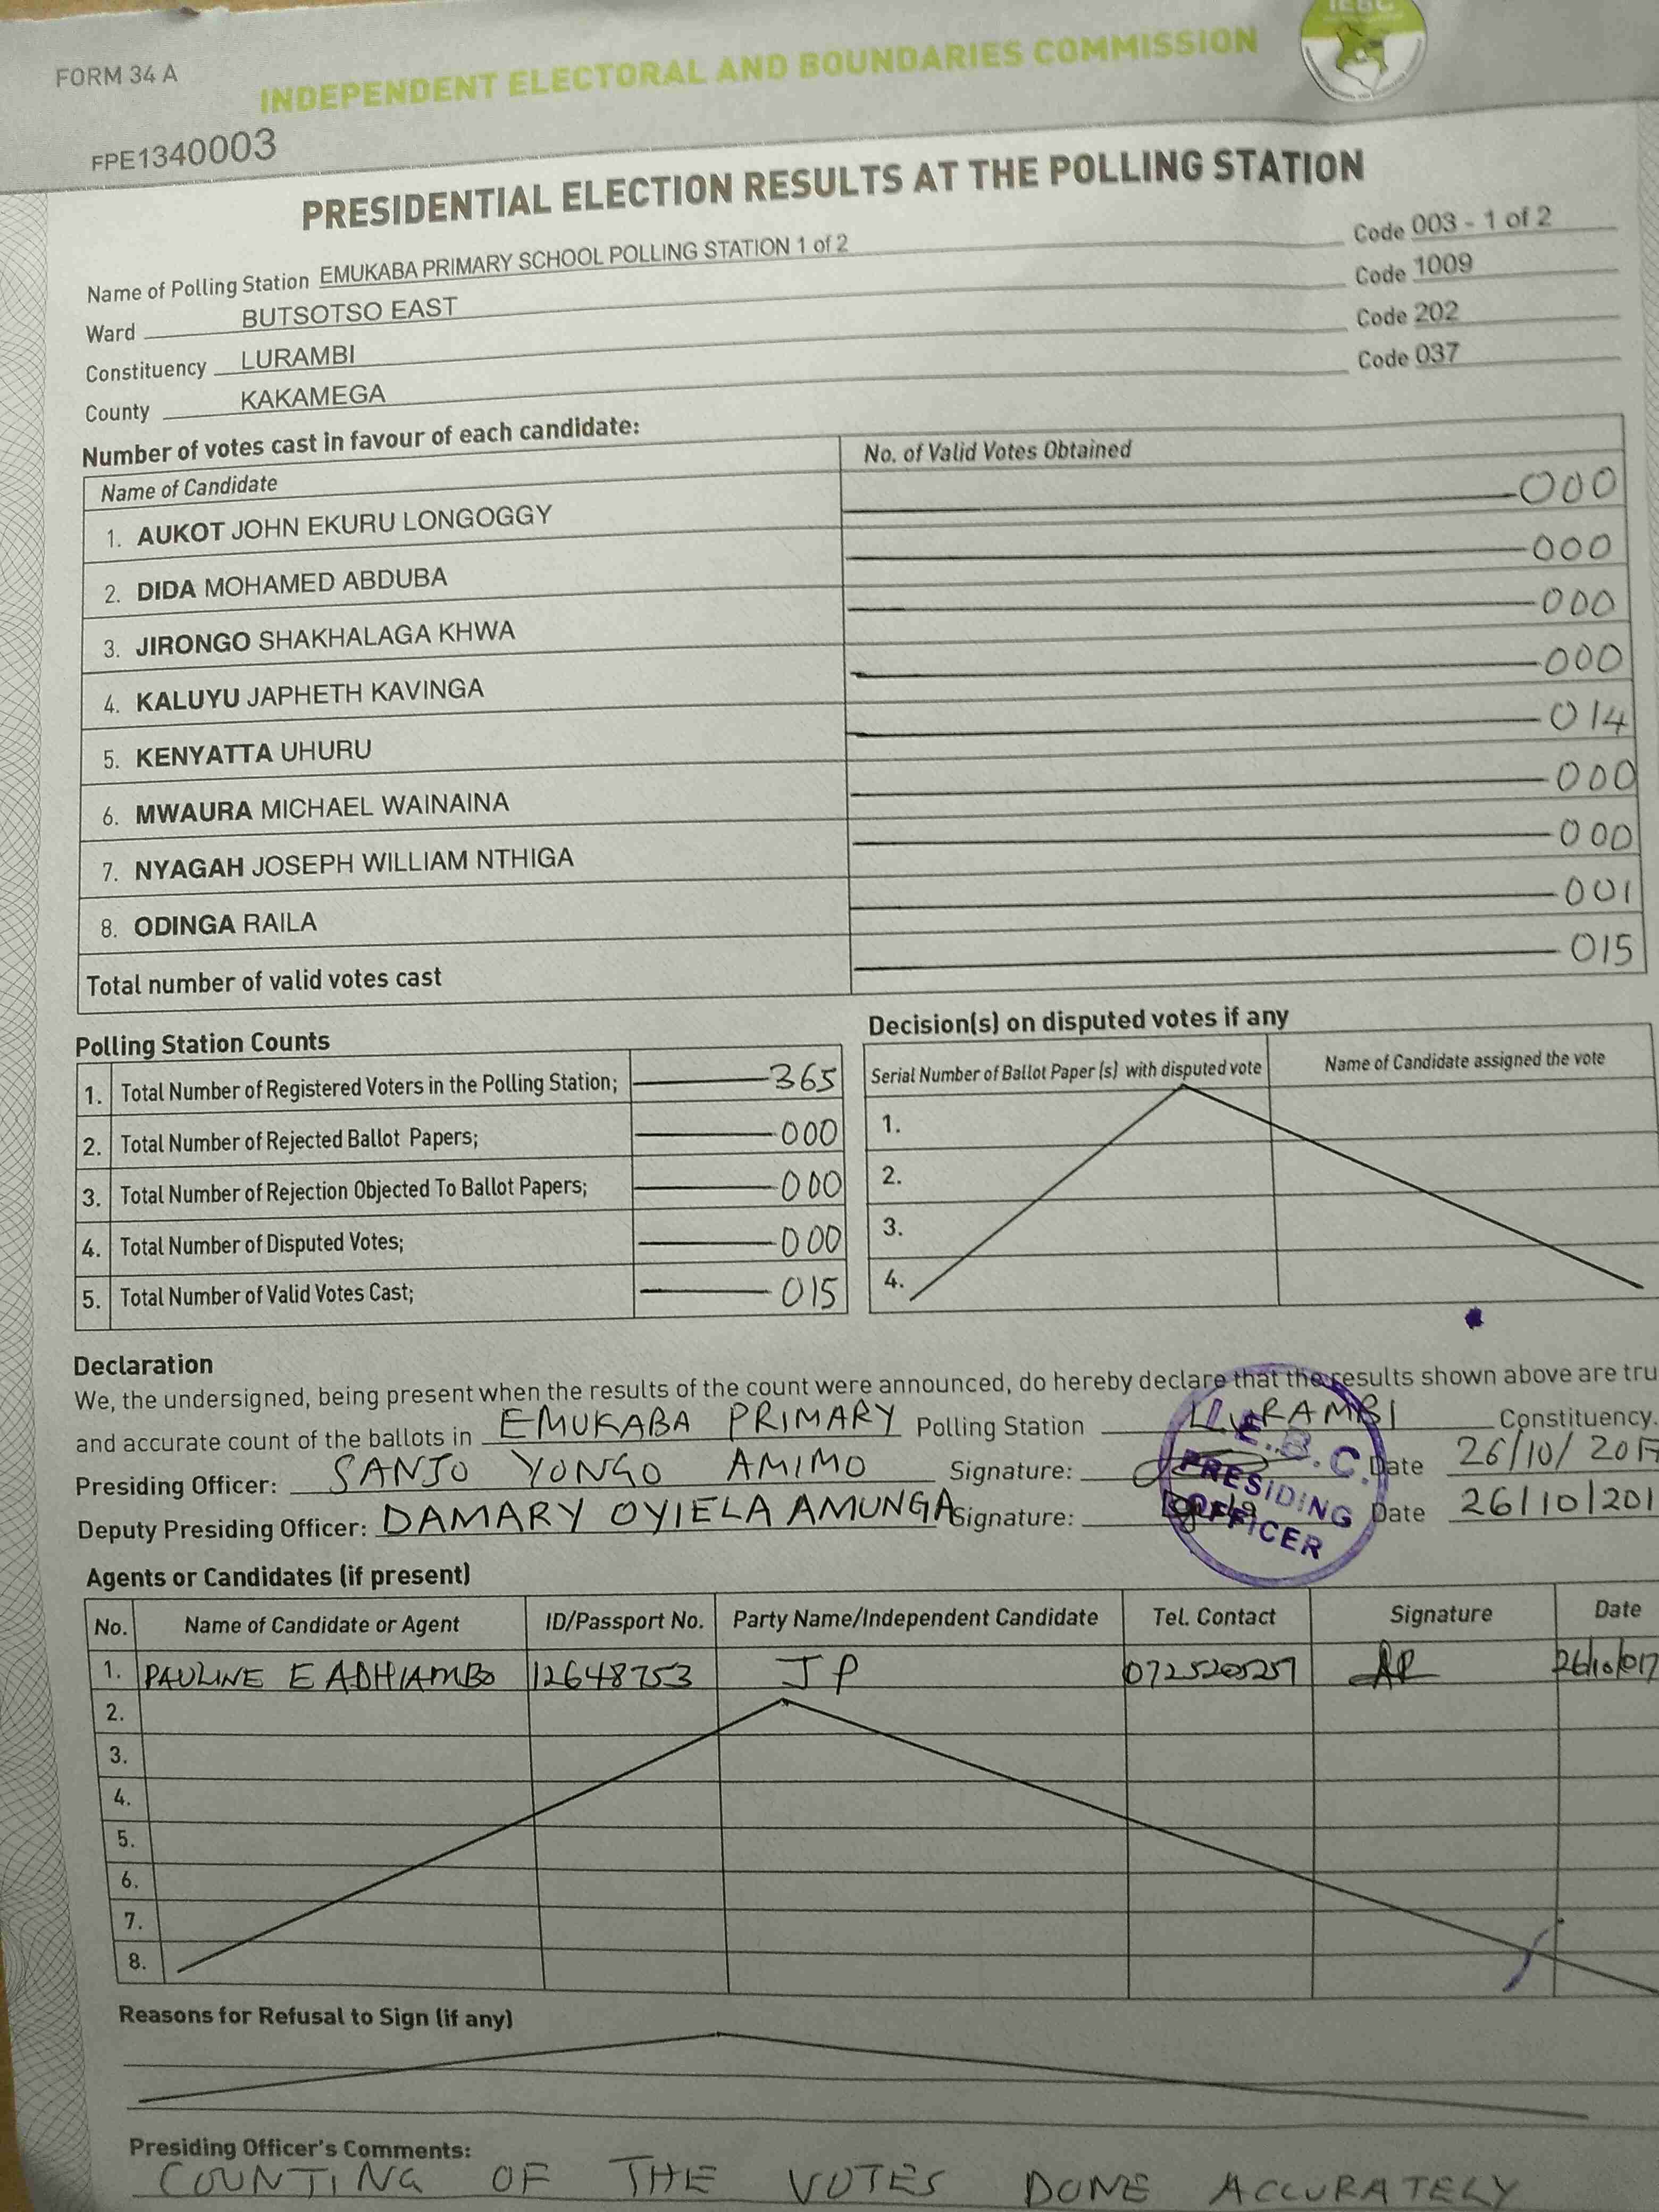 IEBC
FORM 34 A
INDEPENDENT ELECTORAL AND BOUNDARIES COMMISSION
FPE1340003
PRESIDENTIAL ELECTION RESULTS AT THE POLLING STATION
Name of Polling Station EMUKABA PRIMARY SCHOOL POLLING STATION 1 of 2 Code 003 - 1 of 2
Ward BUTSOTSO EAST Code 1009
Constituency LURAMBI Code 202
County KAKAMEGA Code 037
Number of votes cast in favour of each candidate:
Name of Candidate No. of Valid Votes Obtained
1. AUKOT JOHN EKURU LONGOGGY 000
2. DIDA MOHAMED ABDUBA 000
3. JIRONGO SHAKHALAGA KHWA 000
4. KALUYU JAPHETH KAVINGA 000
5. KENYATTA UHURU 014
6. MWAURA MICHAEL WAINAINA 000
7. NYAGAH JOSEPH WILLIAM NTHIGA 000
8. ODINGA RAILA 001
Total number of valid votes cast 015
Polling Station Counts
1. Total Number of Registered Voters in the Polling Station; 365
2. Total Number of Rejected Ballot Papers; 000
3. Total Number of Rejection Objected To Ballot Papers; 000
4. Total Number of Disputed Votes; 000
5. Total Number of Valid Votes Cast; 015
Decision(s) on disputed votes if any
Serial Number of Ballot Paper (s) with disputed vote Name of Candidate assigned the vote
1.
2.
3.
4.
Declaration
We, the undersigned, being present when the results of the count were announced, do hereby declare that the results shown above are tru
and accurate count of the ballots in EMUKABA PRIMARY Polling Station LURAMBI Constituency.
Presiding Officer: SANJO YONGO AMIMO Signature: Date 26/10/2017
Deputy Presiding Officer: DAMARY OYIELA AMUNGA Signature: Date 26/10/201
I.E.B.C.
PRESIDING
OFFICER
Agents or Candidates (if present)
No. Name of Candidate or Agent ID/Passport No. Party Name/Independent Candidate Tel. Contact Signature Date
1. PAULINE E ADHIAMBO 12648753 JP 0725205257 26/10/017
2.
3.
4.
5.
6.
7.
8.
Reasons for Refusal to Sign (if any)
Presiding Officer's Comments:
COUNTING OF THE VOTES DONE ACCURATELY